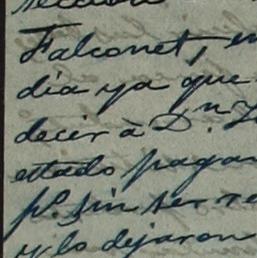 Falconet, en
dia ya que
decir à Dn.
estado pagan
pr. sin ser re
y lo dejaron